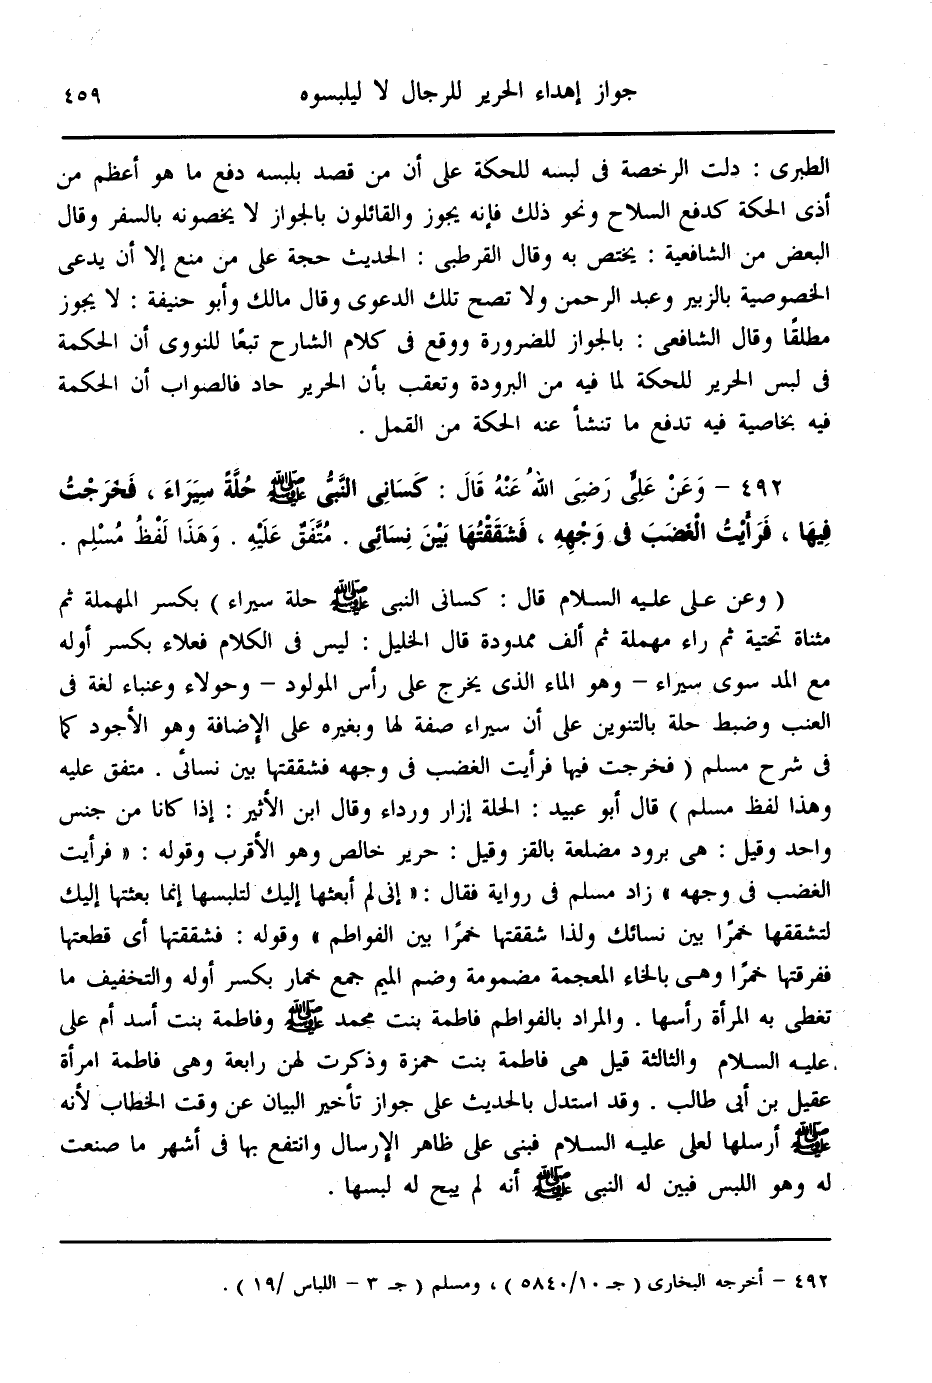 جواز إهداء الحرير للرجال لا ليلبسوه ٤٥٩
الطبرى : دلت الرخصة فى لبسه للحكة على أن من قصد بلبسه دفع ما هو أعظم من
أذى الحكة كدفع السلاح ونحو ذلك فإنه يجوز والقائلون بالجواز لا يخصونه بالسفر وقال
البعض من الشافعية : يختص به وقال القرطبى : الحديث حجة على من منع إلا أن يدعى
الخصوصية بالزبير وعبد الرحمن ولا تصح تلك الدعوى وقال مالك وأبو حنيفة : لا يجوز
مطلقًا وقال الشافعى : بالجواز للضرورة ووقع فى كلام الشارح تبعًا للنووى أن الحكمة
فى لبس الحرير للحكة لما فيه من البرودة وتعقب بأن الحرير حاد فالصواب أن الحكمة
فيه بخاصية فيه تدفع ما تنشأ عنه الحكة من القمل .
٤٩٢ – وَعَنْ عَلِىٍّ رَضِىَ اللهُ عَنْهُ قَالَ : كَسَانِى النَّبِىُّ ﷺ حُلَّةً سِيَرَاءَ ، فَخَرَجْتُ
فِيهَا ، فَرَأَيْتُ الْغَضَبَ فى وَجْهِهِ ، فَشَقَقْتُهَا بَيْنَ نِسَائِى . مُتَّفَقٌ عَلَيْهِ . وَهَذَا لَفْظُ مُسْلِم .
( وعن على عليه السلام قال : كسانى النبى ﷺ حلة سيراء ) بكسر المهملة ثم
مثناة تحتية ثم راء مهملة ثم ألف ممدودة قال الخليل : ليس فى الكلام فعلاء بكسر أوله
مع المد سوى سيراء – وهو الماء الذى يخرج على رأس المولود – وحولاء وعنباء لغة فى
العنب وضبط حلة بالتنوين على أن سيراء صفة لها وبغيره على الإضافة وهو الأجود كما
فى شرح مسلم ( فخرجت فيها فرأيت الغضب فى وجهه فشققتها بين نسائى . متفق عليه
وهذا لفظ مسلم ) قال أبو عبيد : الحلة إزار ورداء وقال ابن الأثير : إذا كانا من جنس
واحد وقيل : هى برود مضلعة بالقز وقيل : حرير خالص وهو الأقرب وقوله : « فرأيت
الغضب فى وجهه » زاد مسلم فى رواية فقال : « إنى لم أبعثها إليك لتلبسها إنما بعثتها إليك
لتشققها خمرًا بين نسائك ولذا شققتها خمرًا بين الفواطم » وقوله : فشققتها أى قطعتها
ففرقتها خمرًا وهى بالخاء المعجمة مضمومة وضم الميم جمع خمار بكسر أوله والتخفيف ما
تغطى به المرأة رأسها . والمراد بالفواطم فاطمة بنت محمد ﷺ وفاطمة بنت أسد أم على
عليه السلام والثالثة قيل هى فاطمة بنت حمزة وذكرت لهن رابعة وهى فاطمة امرأة
عقيل بن أبى طالب . وقد استدل بالحديث على جواز تأخير البيان عن وقت الخطاب لأنه
ﷺ أرسلها لعلى عليه السلام فبنى على ظاهر الإرسال وانتفع بها فى أشهر ما صنعت
له وهو اللبس فبين له النبى ﷺ أنه لم يبح له لبسها .
٤٩٢ – أخرجه البخارى ( جـ ٥٨٤٠/١٠ ) ، ومسلم ( جـ ٣ – اللباس /١٩ ) .